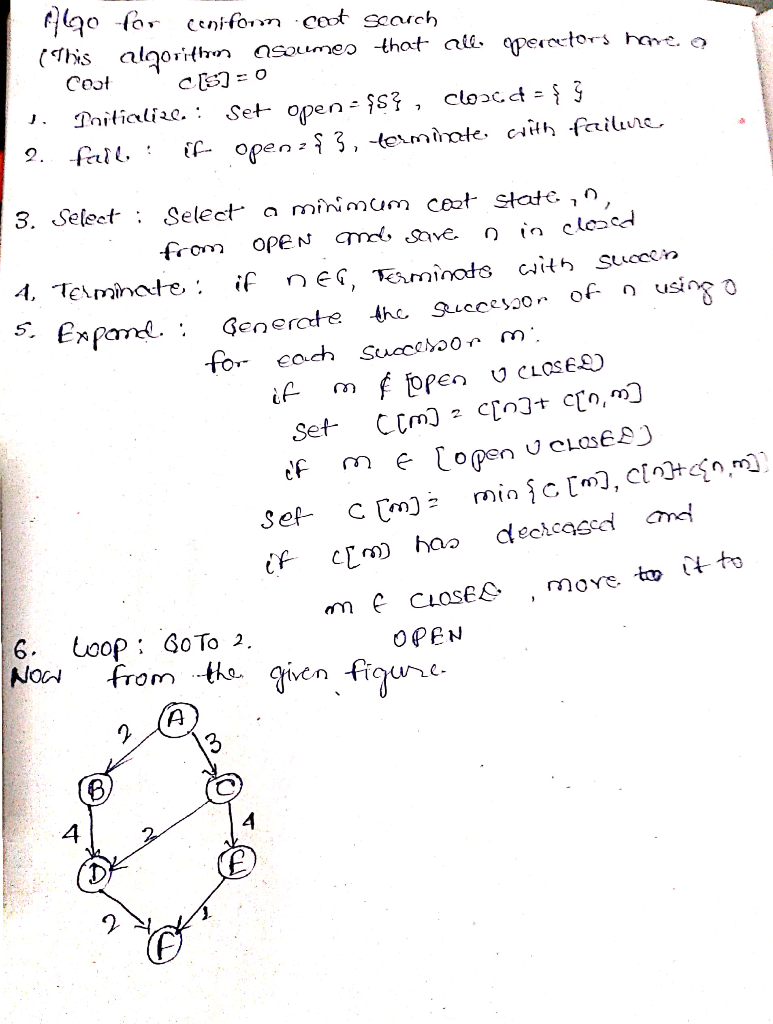 Algo for uniform cost search
(This algorithm assumes that all operators have a
Cost C[S] = 0
1. Initialize : Set open = {S}, closed = { }
2. fail : if open = { }, terminate with failure
3. Select : Select a minimum cost state, n,
from OPEN and save n in closed
4. Terminate : if n ∈ G, Terminate with success
5. Expand : Generate the successor of n using o
for each successor m :
if m ∉ [open ∪ CLOSED]
set C[m] = C[n] + C[n,m]
if m ∈ [open ∪ CLOSED]
set C[m] = min {C[m], C[n]+C{n,m]}
if C[m] has decreased and
m ∈ CLOSED, move to it to
OPEN
6. Loop : GO TO 2.
Now from the given figure.
A
2
3
B
C
4
2
4
D
E
2
1
F